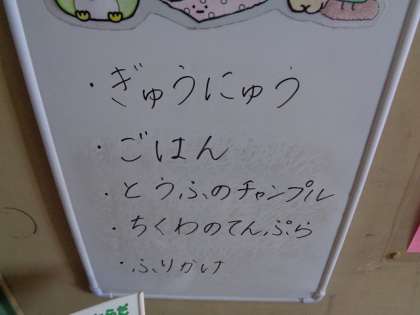 ・ぎゅうにゅう
・ごはん
・とうふのチャンプル
・ちくわのてんぷら
・ふりかけ